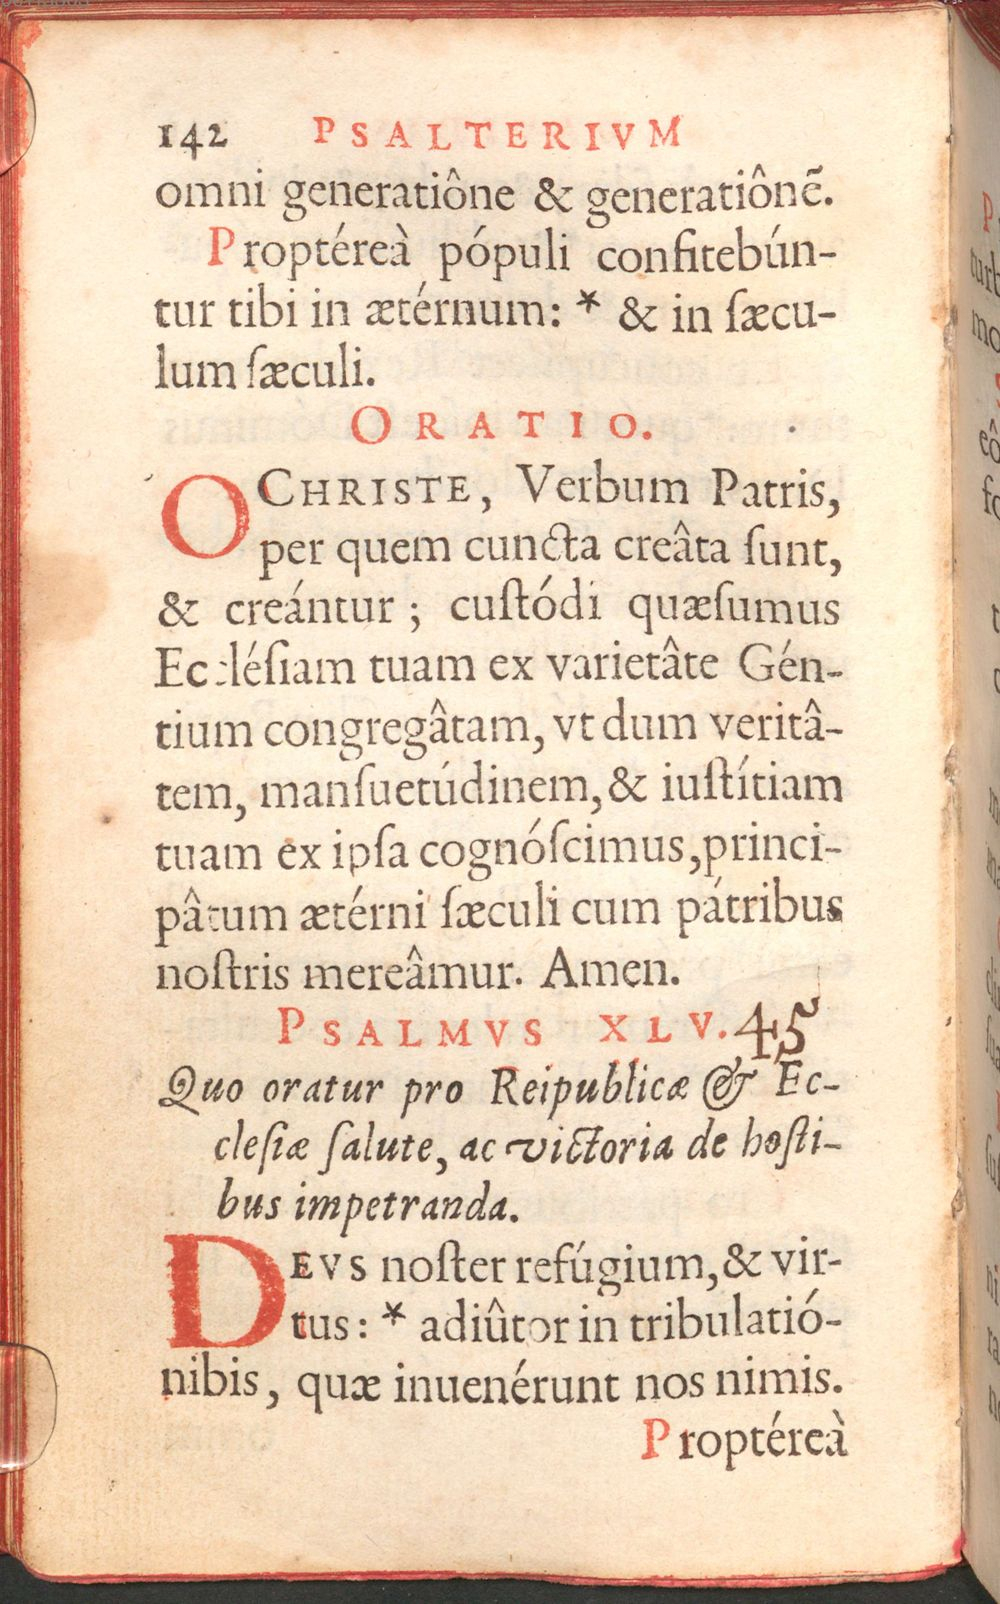 142 PSALTERIVM
omni generatiône & generationẽ.
Proptéreà pópuli confitebún-
tur tibi in ætérnum: * & in ſæcu-
lum ſæculi.
ORATIO.
O CHRISTE, Verbum Patris,
per quem cuncta creâta ſunt,
& creántur ; cuſtódi quæſumus
Eccléſiam tuam ex varietâte Gén-
tium congregâtam, vt dum veritâ-
tem, manſuetúdinem, & iuſtítiam
tuam ex ipſa cognóſcimus, princi-
pâtum ætérni ſæculi cum pátribus
noſtris mereâmur. Amen.
PSALMVS XLV. 45
Quo oratur pro Reipublicæ & Ec-
cleſiæ ſalute, ac victoria de hoſti-
bus impetranda.
DEVS noſter refúgium, & vir-
tus: * adiûtor in tribulatió-
nibis, quæ inuenérunt nos nimis.
Proptéreà